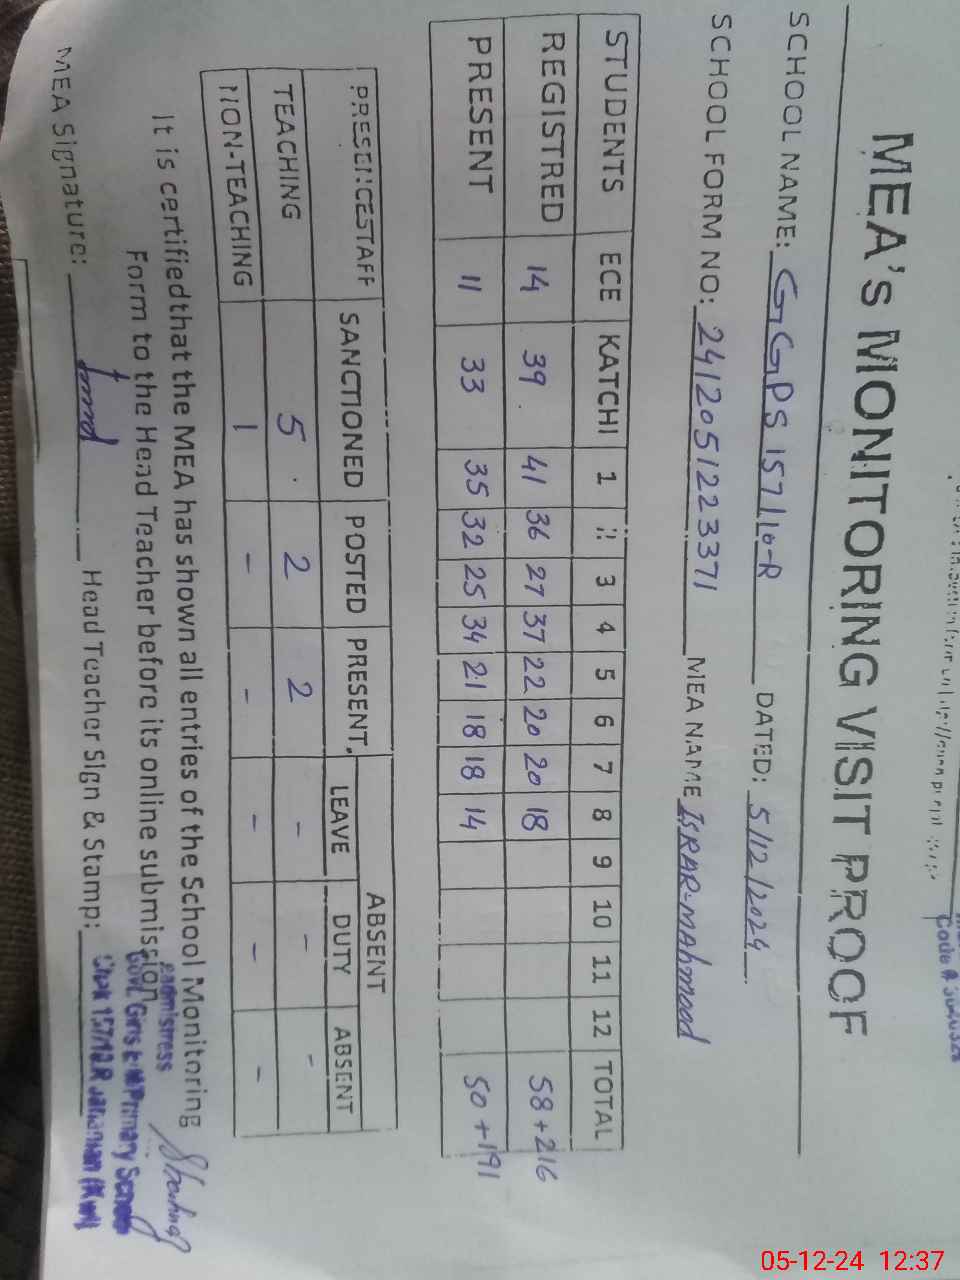 Code #
MEA's MONITORING VISIT PROOF
SCHOOL NAME: GGPS 157/10-R DATED: 5/12/2024
SCHOOL FORM NO: 2412051223371 MEA NAME ISRAR-MAhmood
STUDENTS ECE KATCHI 1 2 3 4 5 6 7 8 9 10 11 12 TOTAL
REGISTRED 14 39 41 36 27 37 22 20 20 18 58+216
PRESENT 11 33 35 32 25 34 21 18 18 14 50+191
PRESENCESTAFF SANCTIONED POSTED PRESENT ABSENT
LEAVE DUTY ABSENT
TEACHING 5 2 2 - - -
NON-TEACHING 1 - - - - -
It is certified that the MEA has shown all entries of the School Monitoring
Form to the Head Teacher before its online submission
MEA Signature: Head Teacher Sign & Stamp:
Govt. Girls Primary
Chak 157/10.R Jahanian
05-12-24 12:37